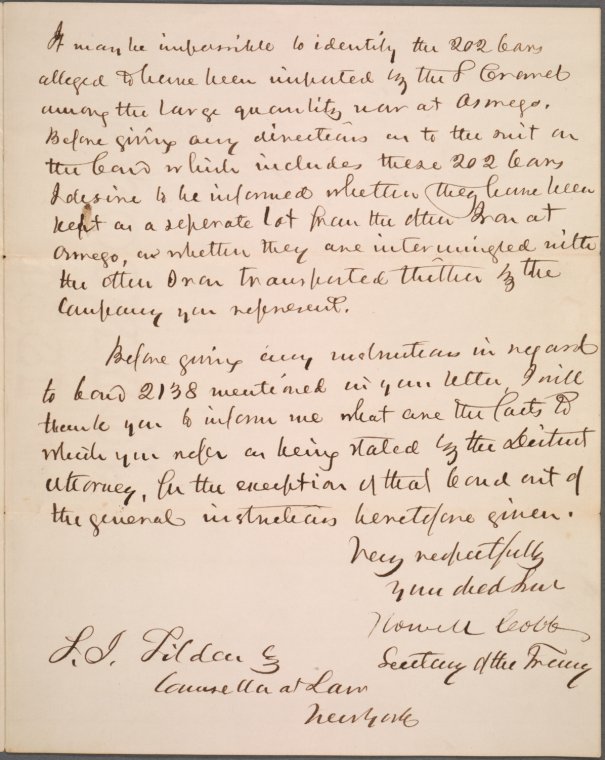 It may be impossible to identify the 202 bars
alleged to have been imported by the S Cronet
among the large quantity now at Oswego.
Before giving any directions as to the suit on
the bond which includes these 202 bars
I desire to be informed whether they have been
kept as a seperate lot from the other Iron at
Oswego, or whether they are intermingled with
the other Iron transported thither by the
Company you represent.
Before giving any instructions in regard
to bond 2138 mentioned in your letter, I will
thank you to inform me what are the facts to
which you refer as being stated by the District
Attorney, for the exception of that bond out of
the general instructions heretofore given.
Very respectfully
Your obed Servt
Howell Cobb
Secretary of the Treasy
S. J. Tilden Esq
Counsellor at Law
New York